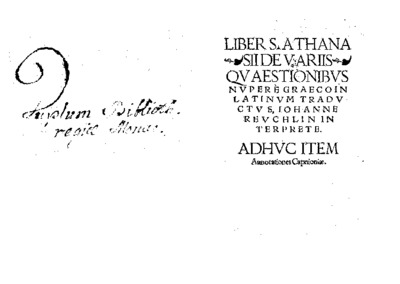 Duplum Biblioth.
regiæ Monac.
LIBER S. ATHANA
SII DE VARIIS
QVAESTIONIBVS
NVPER È GRAECO IN
LATINVM TRADV
CTVS, IOHANNE
REVCHLIN IN
TERPRETE.
ADHVC ITEM
Annotationes Capnioniæ.